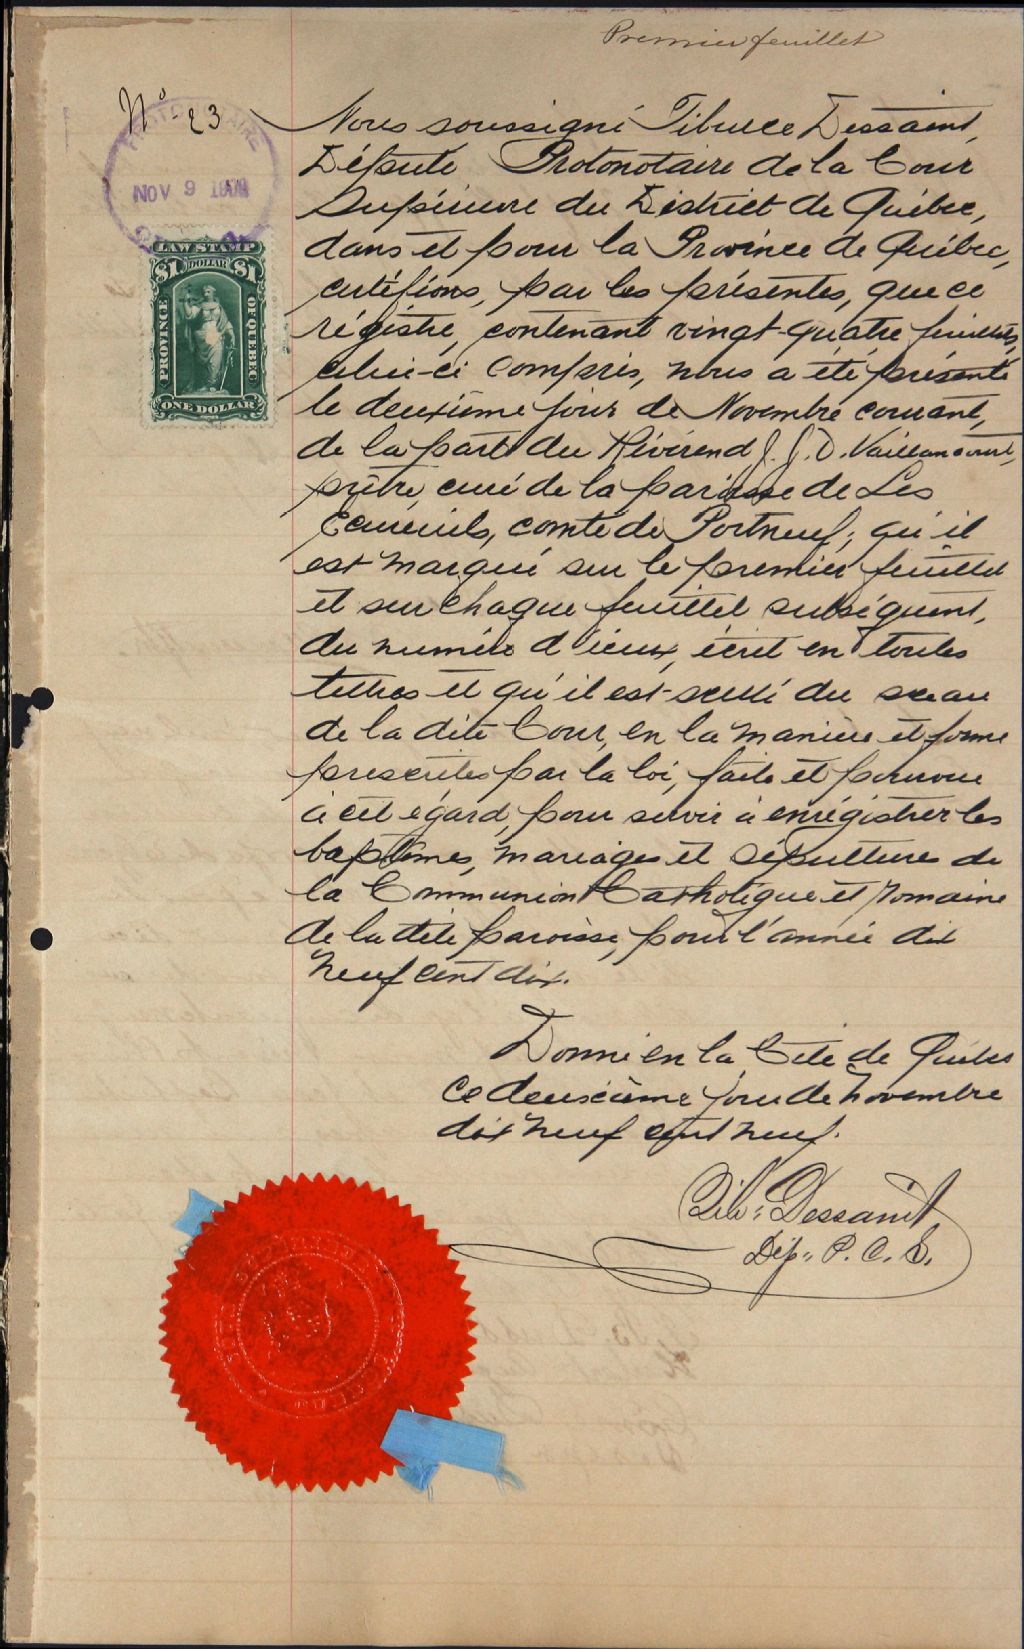 Premier feuillet
No 23
PROTONOTAIRE
NOV 9 1909
LAW STAMP
$1 DOLLAR $1
PROVINCE OF QUEBEC
ONE DOLLAR
Nous soussigné Tiburce Dessaint,
Député Protonotaire de la Cour
Supérieure du District de Québec,
dans et pour la Province de Québec,
certifions, par les présentes, que ce
régistre, contenant vingt-quatre feuillets,
celui-ci compris, nous a été présenté
le deuxième jour de Novembre courant,
de la part du Révérend J. J. D. Vaillancourt,
prêtre, curé de la paroisse de Les
Ecureuils, comté de Portneuf; qu'il
est marqué sur le premier feuillet
et sur chaque feuillet subséquent,
du numéro d'iceux, écrit en toutes
lettres et qu'il est scellé du sceau
de la dite Cour, en la manière et forme
prescrites par la loi, faite et pourvue
à cet égard, pour servir à enrégistrer les
baptêmes, mariages et sépultures de
la Communion Catholique et Romaine
de la dite paroisse, pour l'année dix
neuf cent dix.
Donné en la Cité de Québec
ce deuxième jour de Novembre
dix neuf cent neuf.
Tib: Dessaint
Dép: P. C. S.